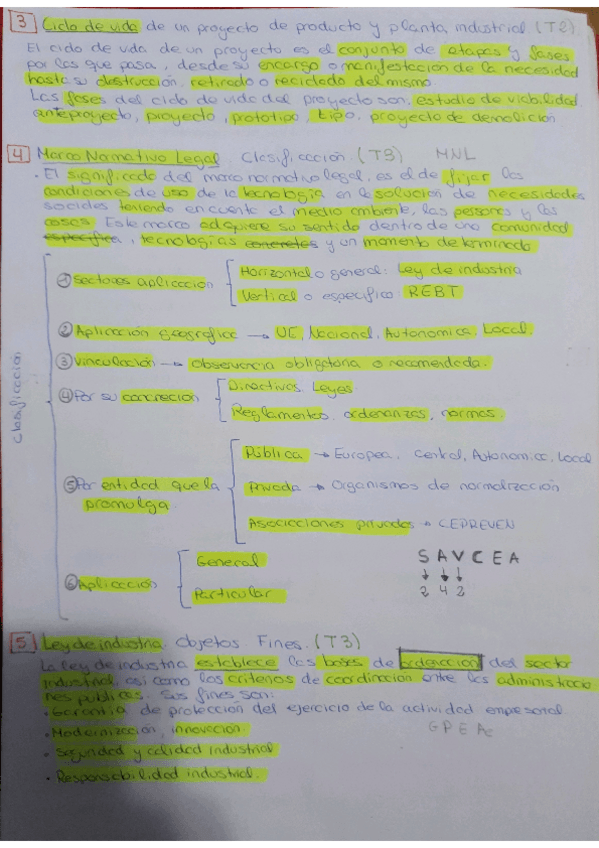 3 Ciclo de vida de un proyecto de producto y planta industrial. (T2)
El ciclo de vida de un proyecto es el conjunto de etapas y fases
por las que pasa, desde su encargo o manifestación de la necesidad
hasta su destrucción, retirado o reciclado del mismo.
Las fases del ciclo de vida del proyecto son, estudio de viabilidad,
anteproyecto, proyecto, prototipo, tipo, proyecto de demolición.
4 Marco Normativo Legal. Clasificación. (T3) MNL
· El significado del marco normativo legal, es el de fijar las
condiciones de uso de la tecnología en la solución de necesidades
sociales teniendo en cuenta el medio ambiente, las personas y las
cosas. Este marco adquiere su sentido dentro de una comunidad
especifica, tecnologías concretas y un momento determinado
Clasificación
1 Sectores aplicación
Horizontal o general: Ley de industria
Vertical o especifico: REBT
2 Aplicación geográfica → UE, Nacional, Autonomica, Local.
3 Vinculación → Observancia obligatoria o recomendada.
4 Por su concreción
Directivas. Leyes.
Reglamentos, ordenanzas, normas.
5 Por entidad que la
promulga.
Pública → Europea, Central, Autonomica, Local
Privada → Organismos de normalización
Asociaciones privadas → CEPREVEN
6 Aplicación
General
Particular
S A V C E A
↓ ↓ ↓
2 4 2
5 Ley de industria. Objetos Fines. (T3)
La ley de industria establece las bases de ordenación del sector
industrial, así como los criterios de coordinación entre las administracio
nes públicas. Sus fines son:
· Garantía de protección del ejercicio de la actividad empresarial
· Modernización, innovación.
· Seguridad y calidad industrial
· Responsabilidad industrial.